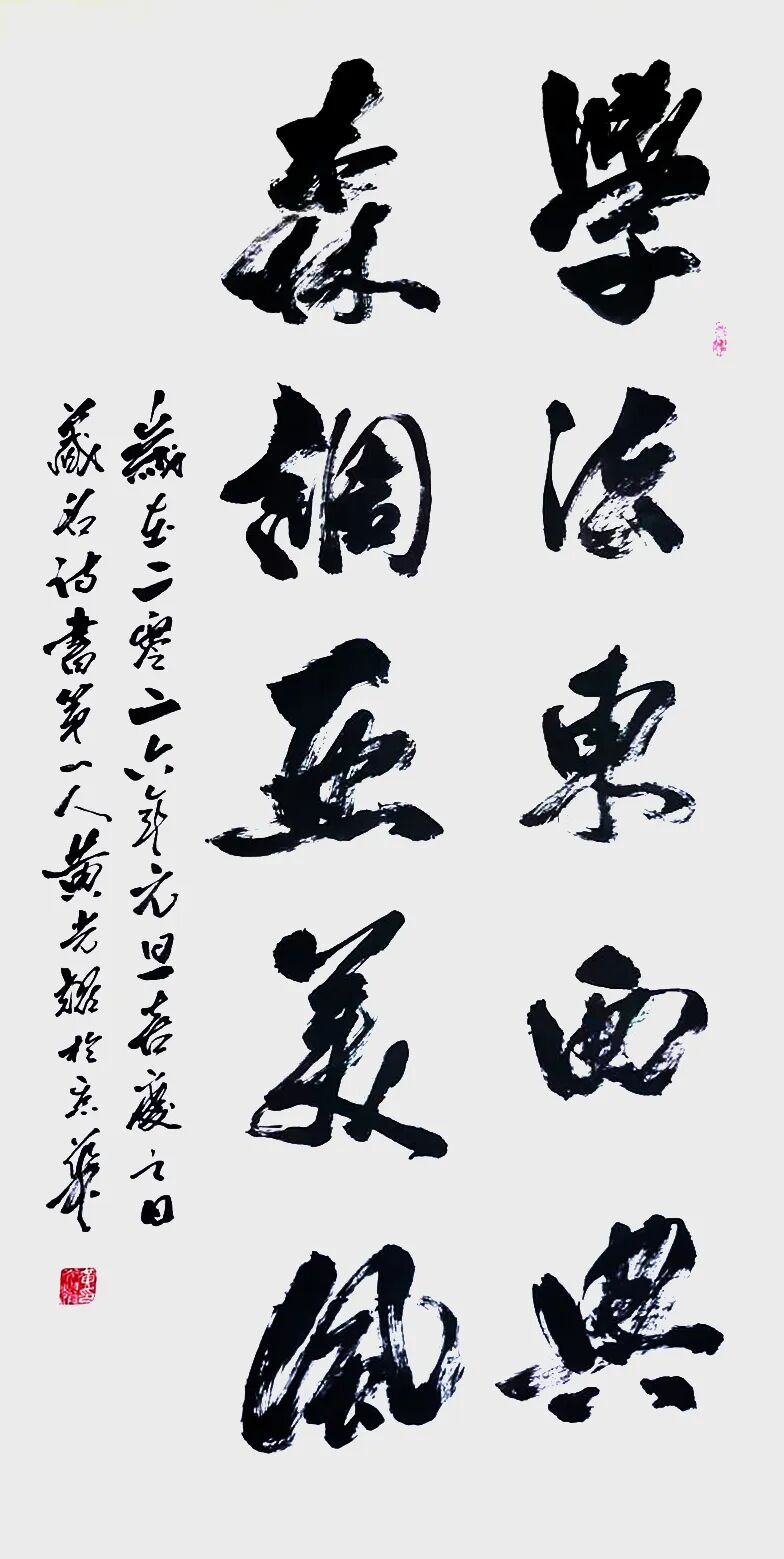 學法東西典
森調亞美風
歲在二零二六年元旦喜慶之日
藏名詩書第一人黄光耀於京華